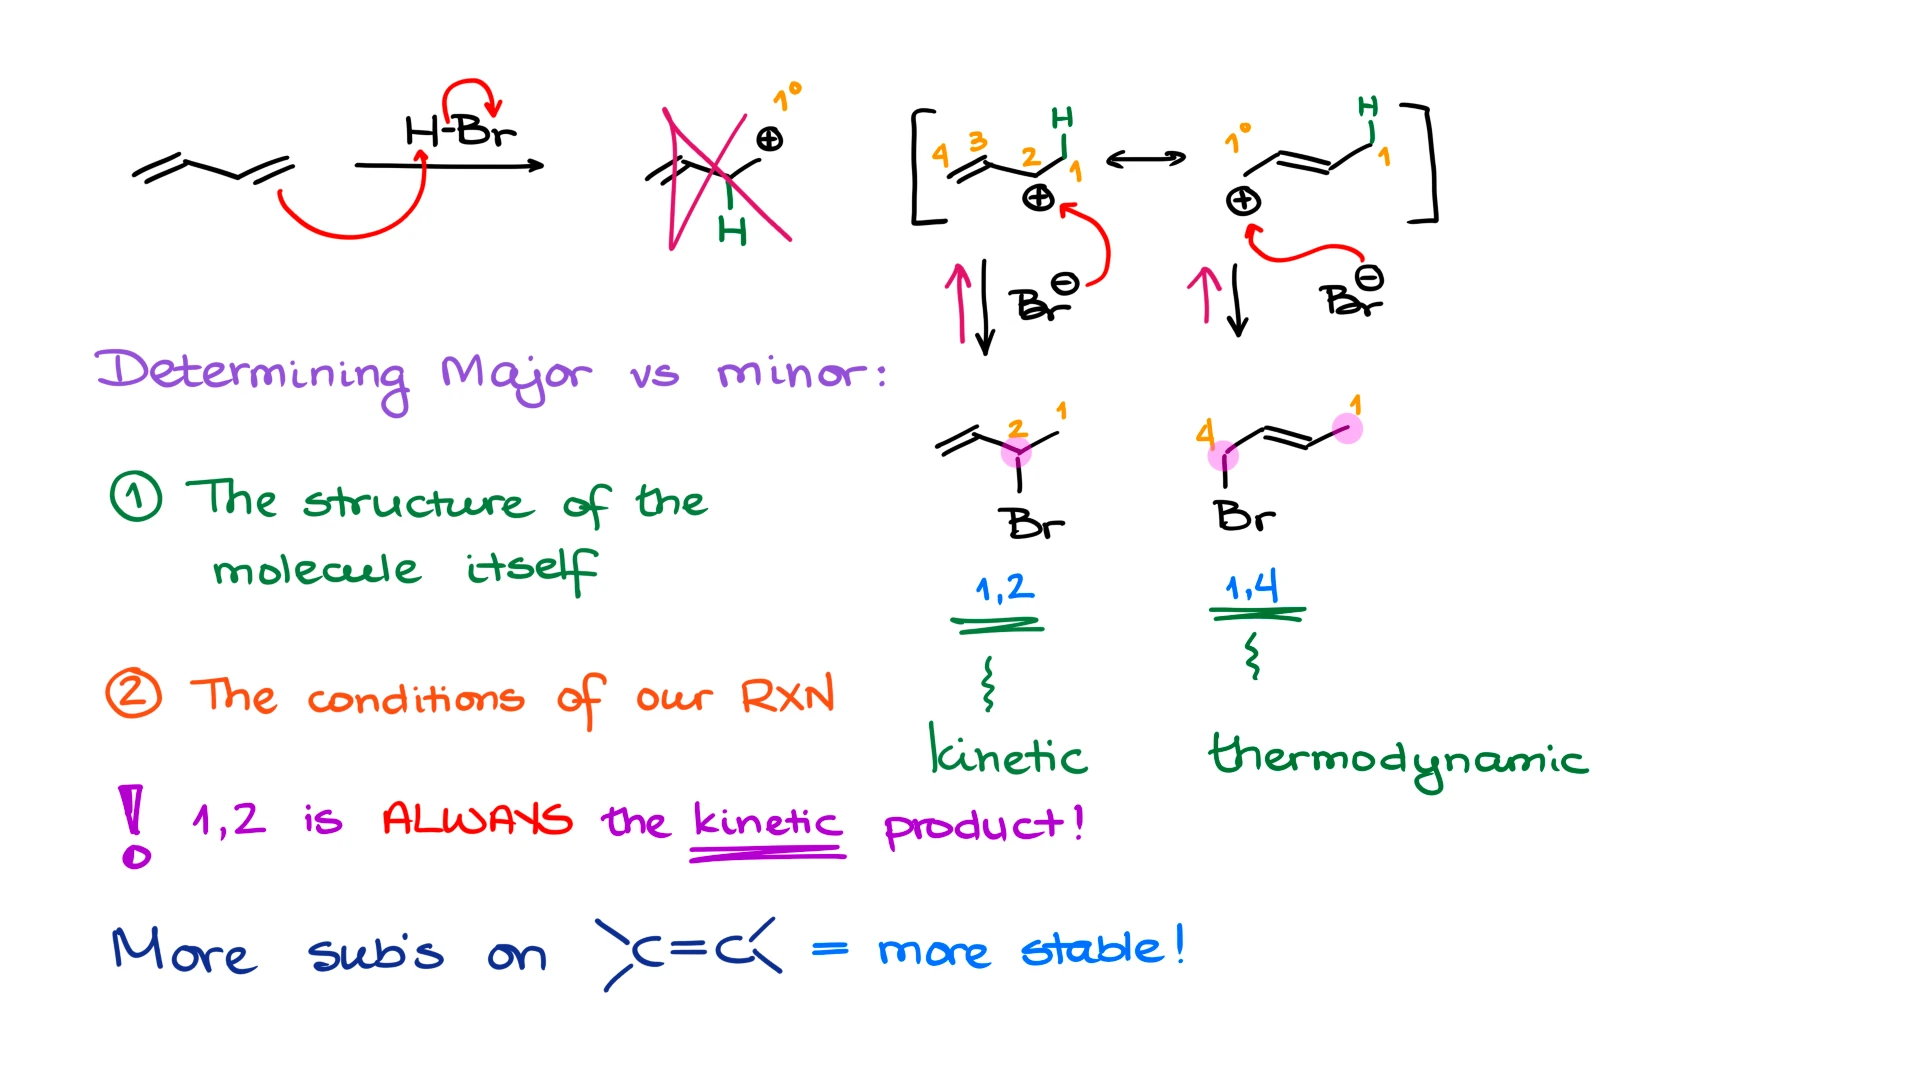 H-Br
1° ⊕
H
4 3 2 1 H ⊕
1° ⊕ H 1
Br ⊖
Br ⊖
Determining Major vs minor:
2 1
4 1
Br
Br
① The structure of the
molecule itself
1,2
1,4
② The conditions of our RXN
kinetic
thermodynamic
! 1,2 is ALWAYS the kinetic product!
More sub's on C=C = more stable!